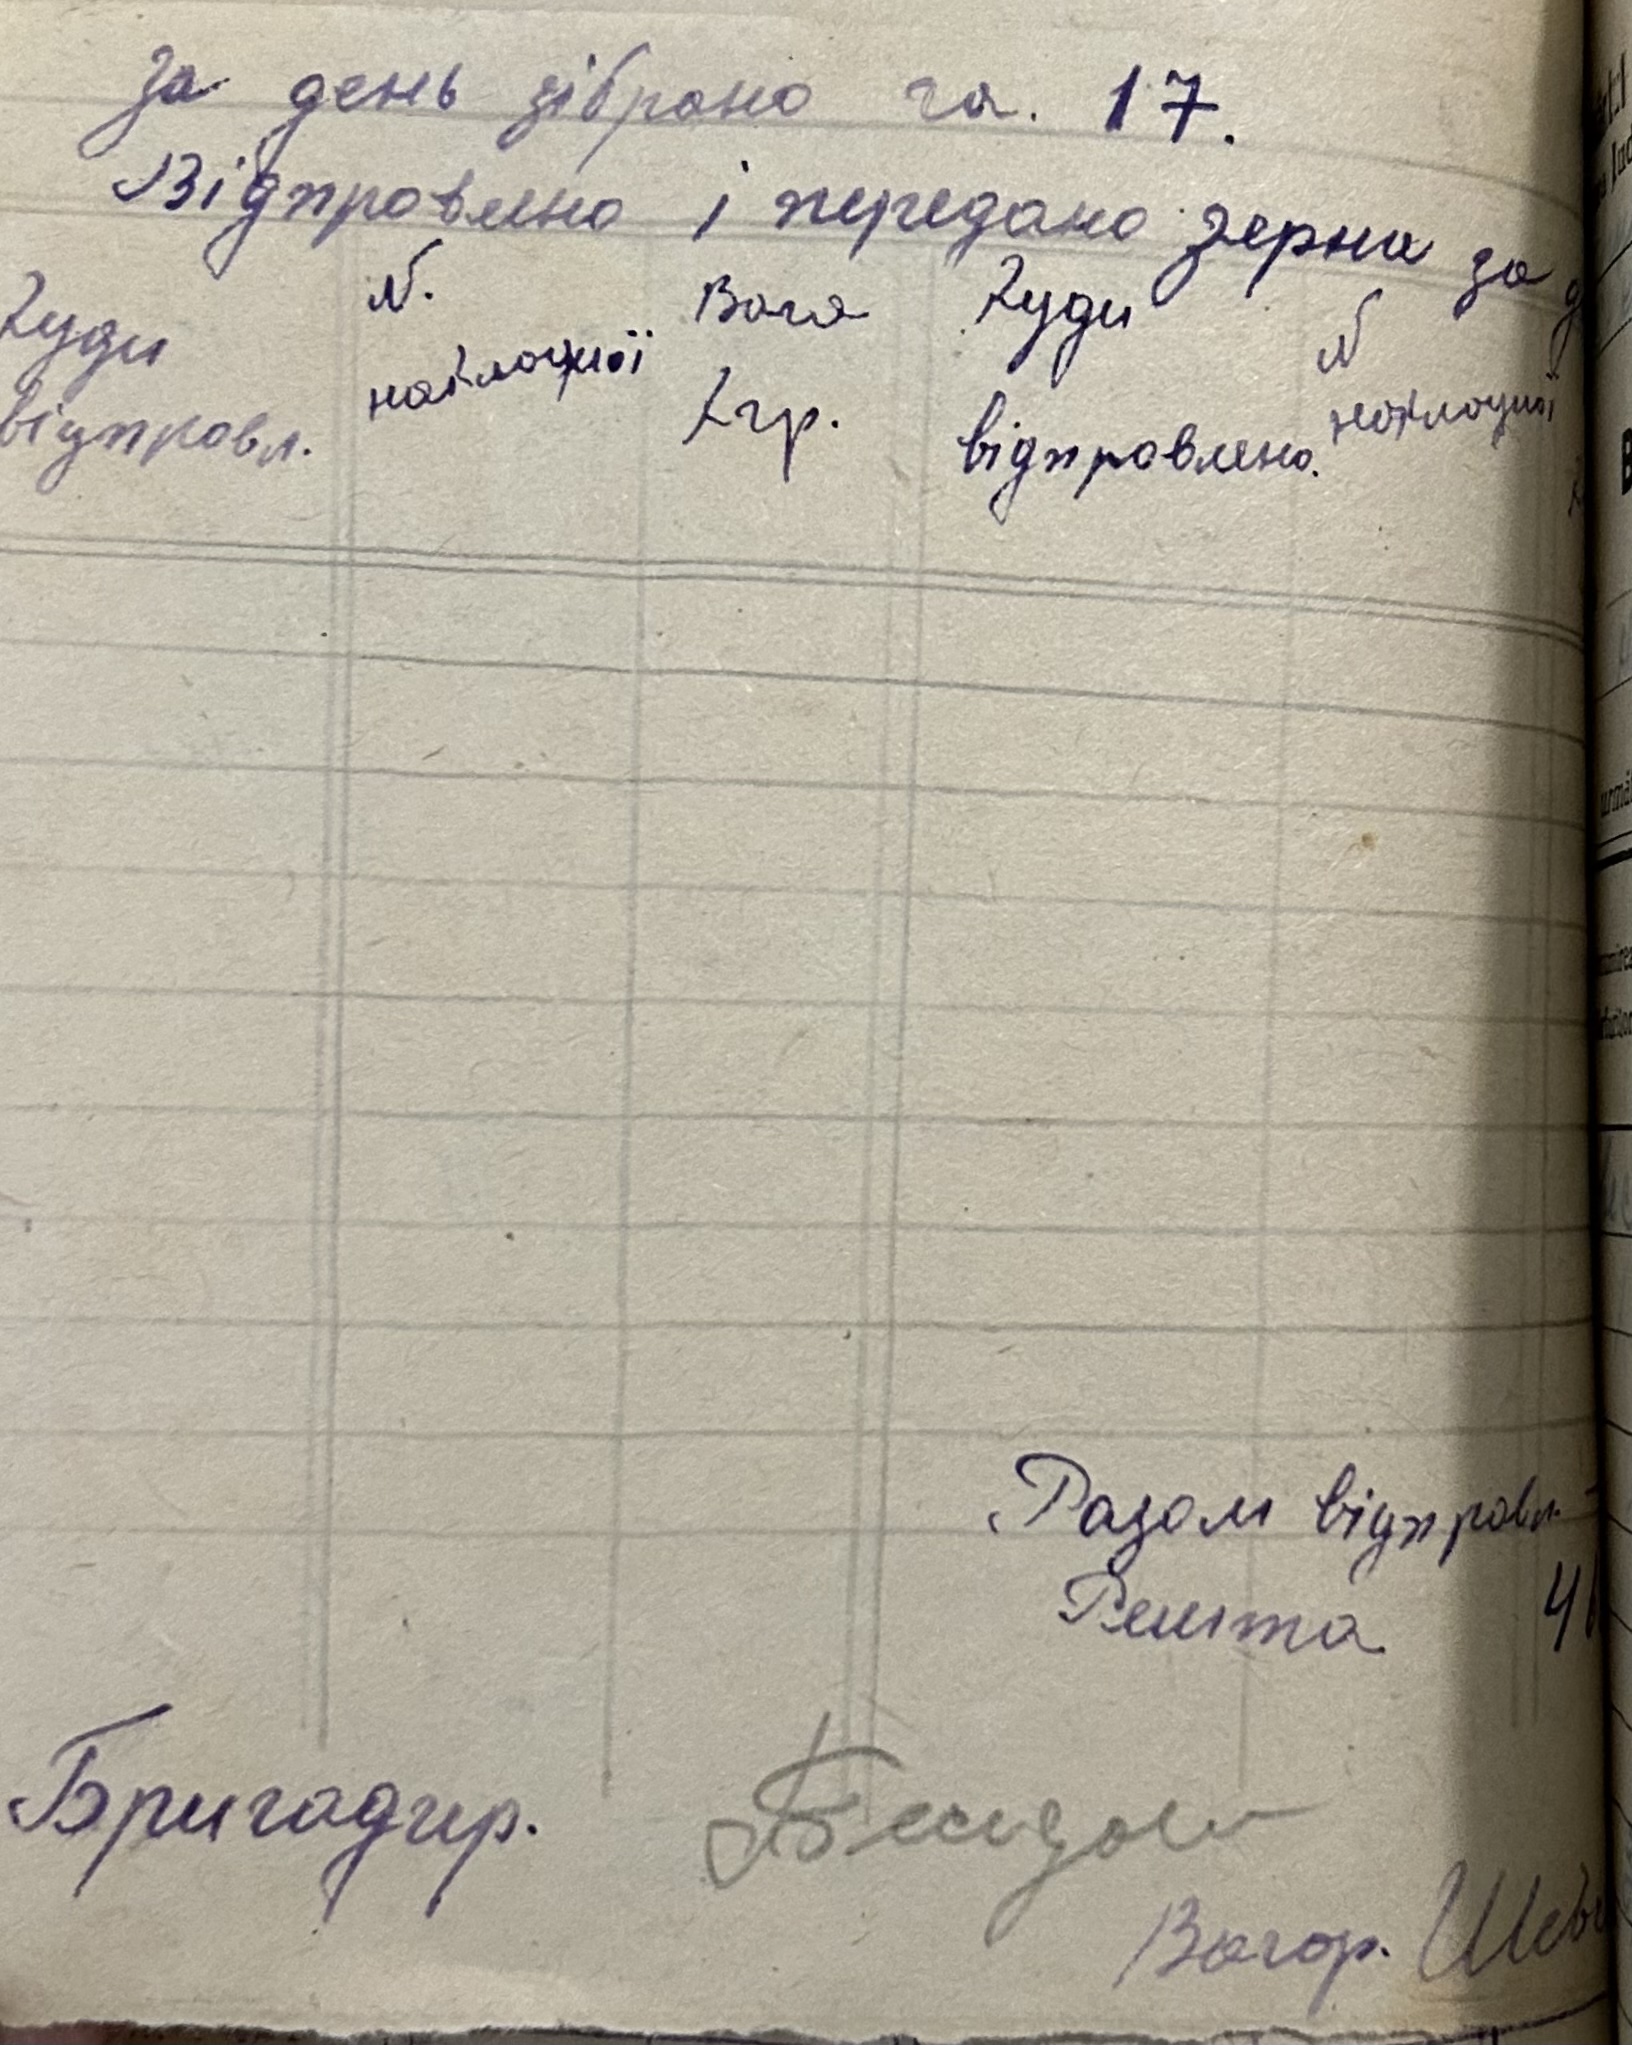 за день зібрано га. 17.
Відправлено і передано зерна за
Куди відправл.
N. накладної
Вага Кгр.
Куди відправлено.
N накладної
Разом відправл. -
Решта
Бригадир.
Вагар. Шев